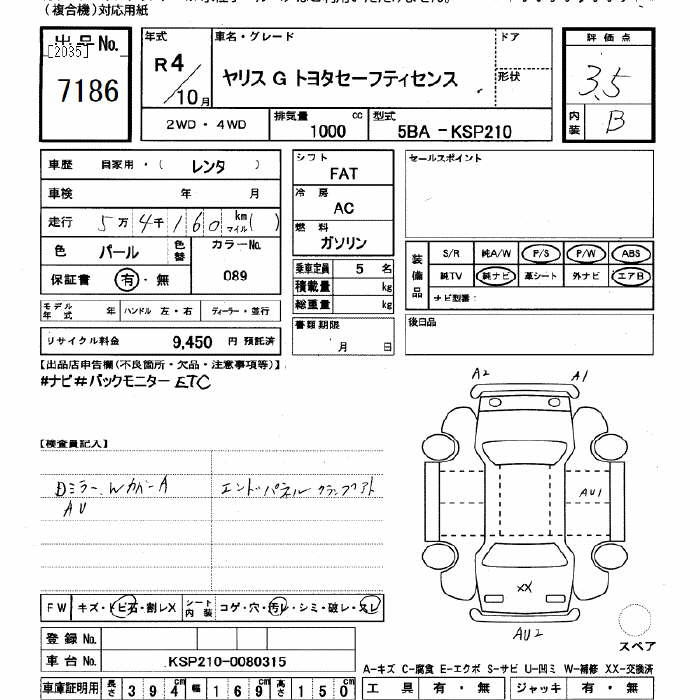 (複合機)対応用紙
出品No.
[2035]
7186
年式
R4/10月
車名・グレード
ヤリス G トヨタセーフティセンス
ドア
形状
評価点
3.5
内装
B
2WD・4WD
排気量
1000 cc
型式
5BA-KSP210
車歴 自家用・( レンタ )
車検 年 月
走行 5万 4千 1 6 0 km マイル ( )
色 パール 色替
カラーNo.
089
保証書 有・無
シフト
FAT
冷房
AC
燃料
ガソリン
乗車定員 5 名
積載量 kg
総重量 kg
書類期限
月 日
セールスポイント
装備品
S/R 純A/W P/S P/W ABS
純TV 純ナビ 革シート 外ナビ エアB
ナビ型番:
後日品
モデル年式 年 ハンドル 左・右 ディーラー・並行
リサイクル料金 9,450 円 預託済
【出品店申告欄(不良箇所・欠品・注意事項等)】
#ナビ#バックモニター ETC
【検査員記入】
Dミラー、Wカバー A
AU
エンドパネル クランプアト
A2
A1
AU1
XX
AU2
スペア
FW キズ・トビ石・割レX
シート内装 コゲ・穴・汚レ・シミ・破レ・スレ
登録No.
車台No. KSP210-0080315
A-キズ C-腐食 E-エクボ S-サビ U-凹ミ W-補修 XX-交換済
車庫証明用 長さ 394cm 幅 169cm 高さ 150cm
工具 有・無 ジャッキ 有・無